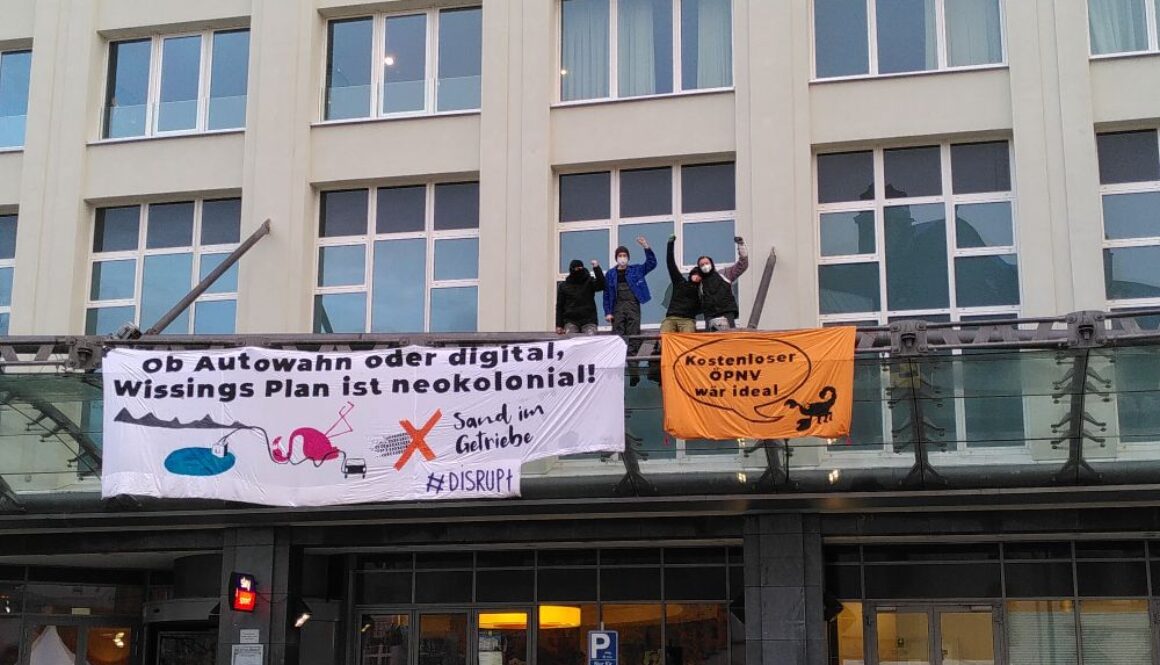 Ob Autowahn oder digital,
Wissings Plan ist neokolonial!
Sand im
Getriebe
#DISRUPt
Kostenloser
ÖPNV
wär ideal
sky
P